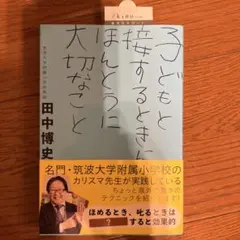 子どもと
接するときに
ほんとうに
大切なこと
田中博史
名門・筑波大学附属小学校の
カリスマ先生が実践している
テクニックを紹介します!
ほめるとき、叱るときは
?
すると効果的